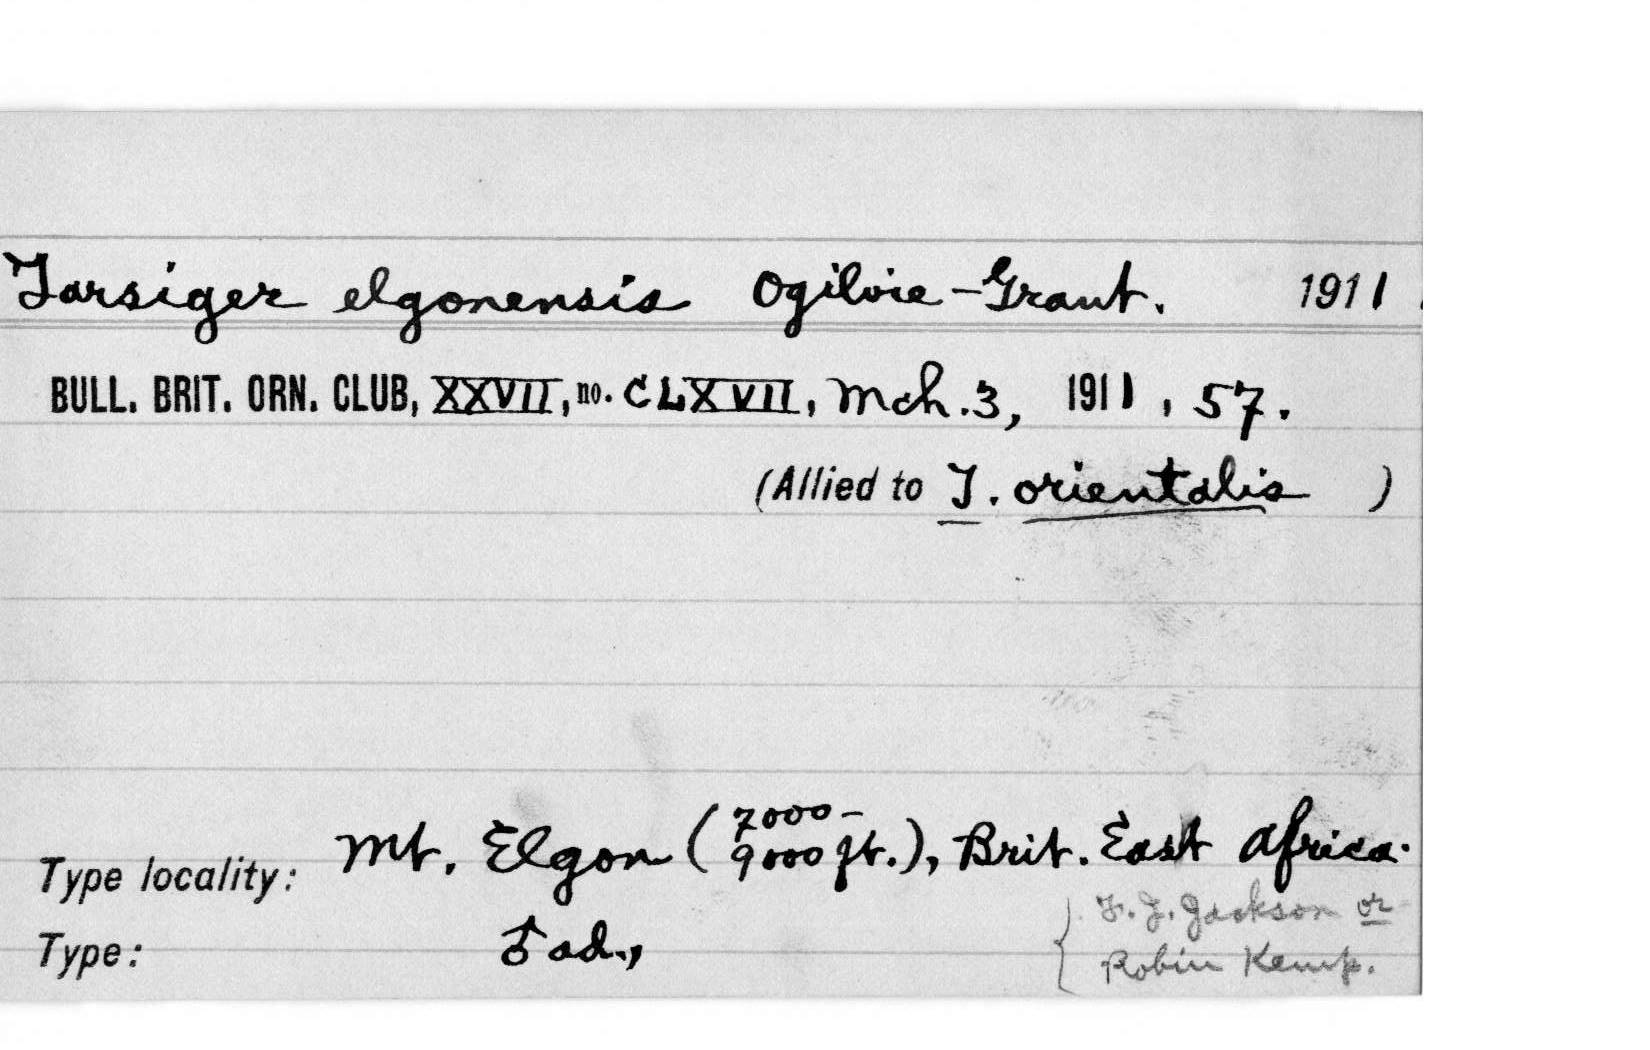 Tarsiger elgonensis Ogilvie-Grant. 1911.
BULL. BRIT. ORN. CLUB, XXVII, no. CLXVII, Mch. 3, 1911, 57.
(Allied to T. orientalis )
Type locality: Mt. Elgon (7000-9000 ft.), Brit. East Africa.
F. J. Jackson or
Type: ♂ ad., Robin Kemp.